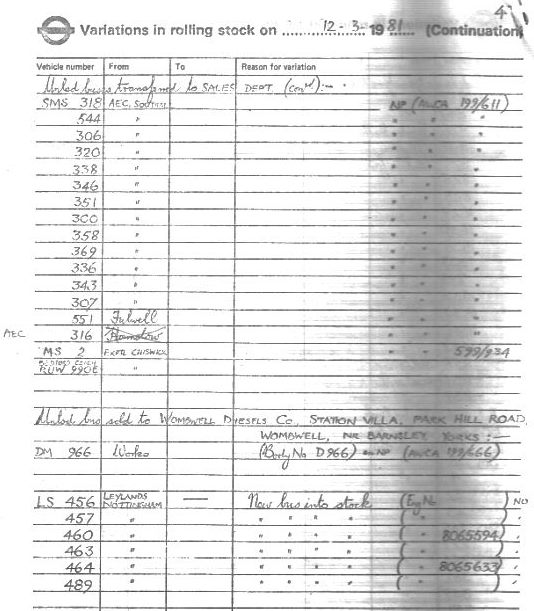 4
Variations in rolling stock on 12-3-1981 (Continuation)
Vehicle number From To Reason for variation
Unlicd buses transferred to SALES DEPT. (contd):-
SMS 318 AEC, SOUTHALL NP (AWCA 199/611)
544 " " " "
306 " " " "
320 " " " "
338 " " " "
346 " " " "
351 " " " "
300 " " " "
358 " " " "
369 " " " "
336 " " " "
343 " " " "
307 " " " "
551 Fulwell " " "
AEC 316 Hounslow " " "
MS 2 EXPTL CHISWICK " " 599/934
RUW 990E "
Unlicd bus sold to WOMBWELL DIESELS CO., STATION VILLA, PARK HILL ROAD,
WOMBWELL, NR BARNSLEY YORKS:-
DM 966 Works (Body No D966) NP (AWCA 199/666)
LS 456 LEYLANDS NOTTINGHAM — New bus into stock (Eng No NO
457 " " " " " ( "
460 " " " " " ( " 8065594
463 " " " " " ( "
464 " " " " " ( " 8065633
489 " " " " " ( "